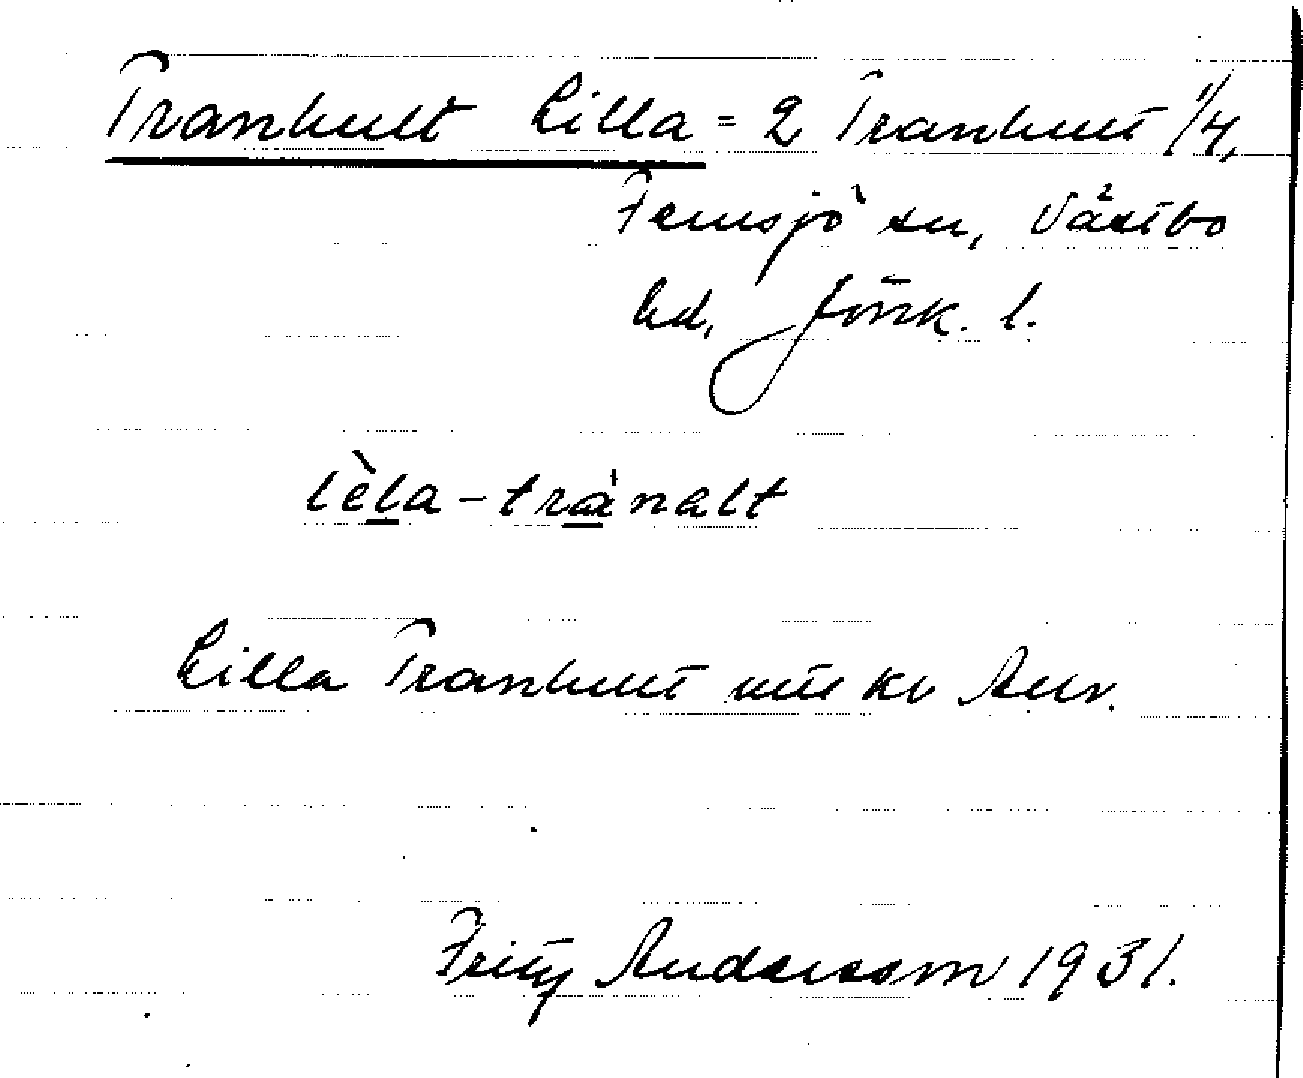 Tranhult Lilla = 2 Tranhult 1/4,
Femsjö sn, Västbo
hd, Jönk. l.
lèla-tránalt
Lilla Tranhult
Fritz Andersson 1931.